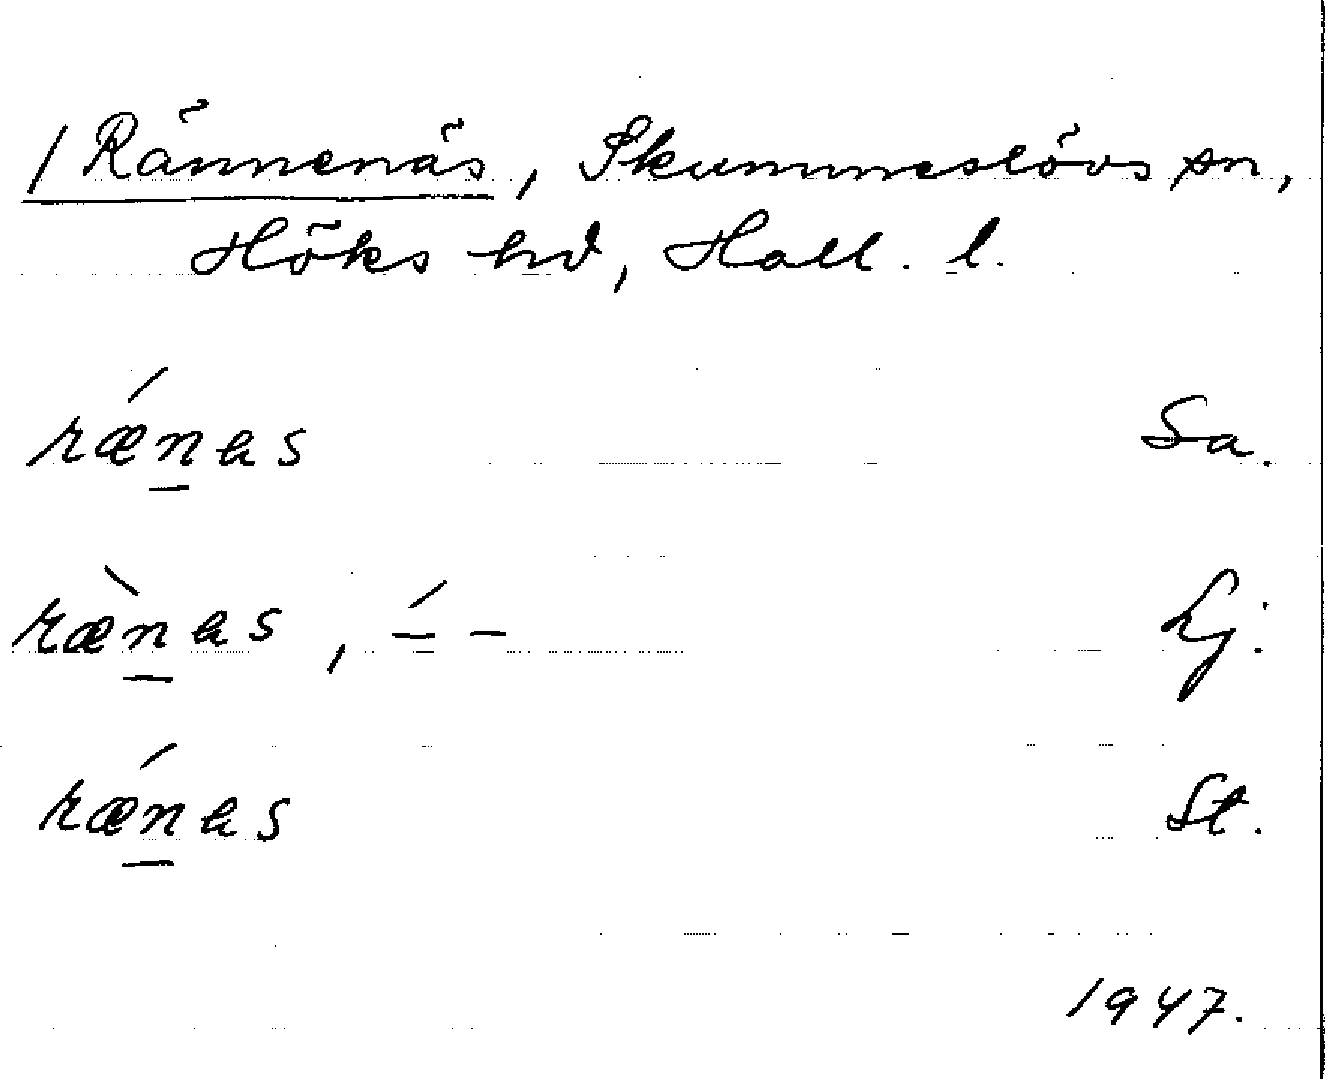 / Rännenäs, Skummeslövs sn,
Höks hd, Hall. l.
rǽn̲as Sa.
ræ̀n̲as, –́ – Lj.
rǽn̲as St.
1947.